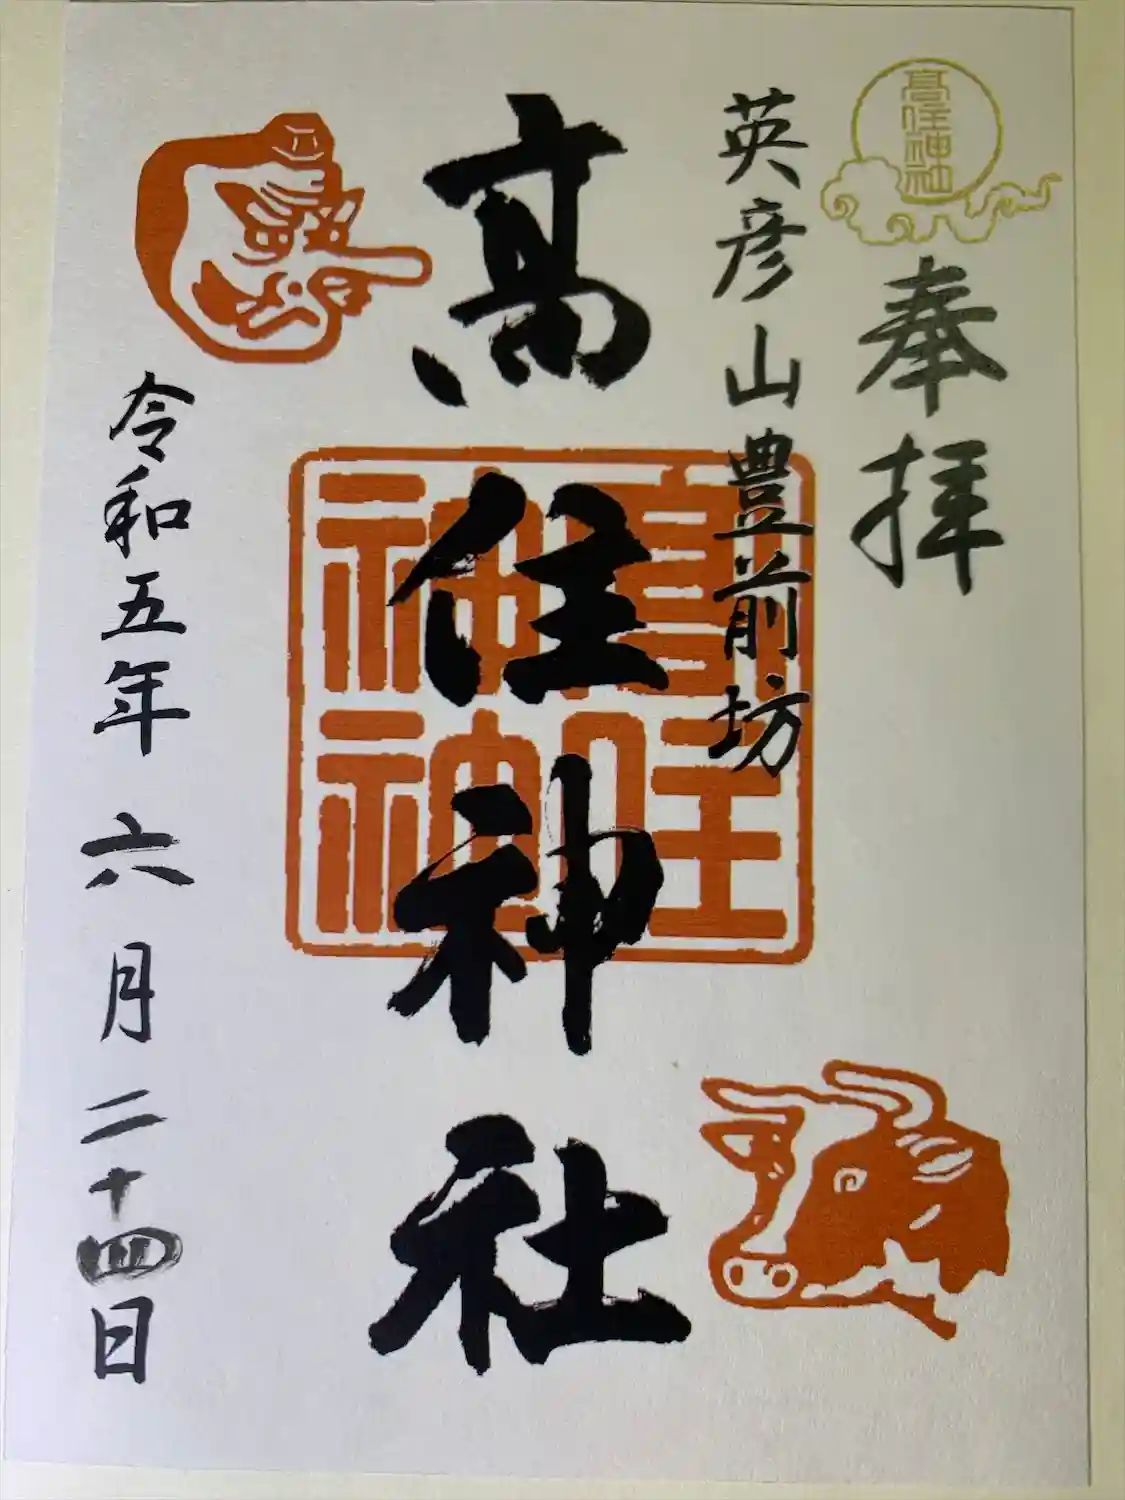 高住神社
奉拝
英彦山豊前坊
高住神社
高住神社
令和五年六月二十四日